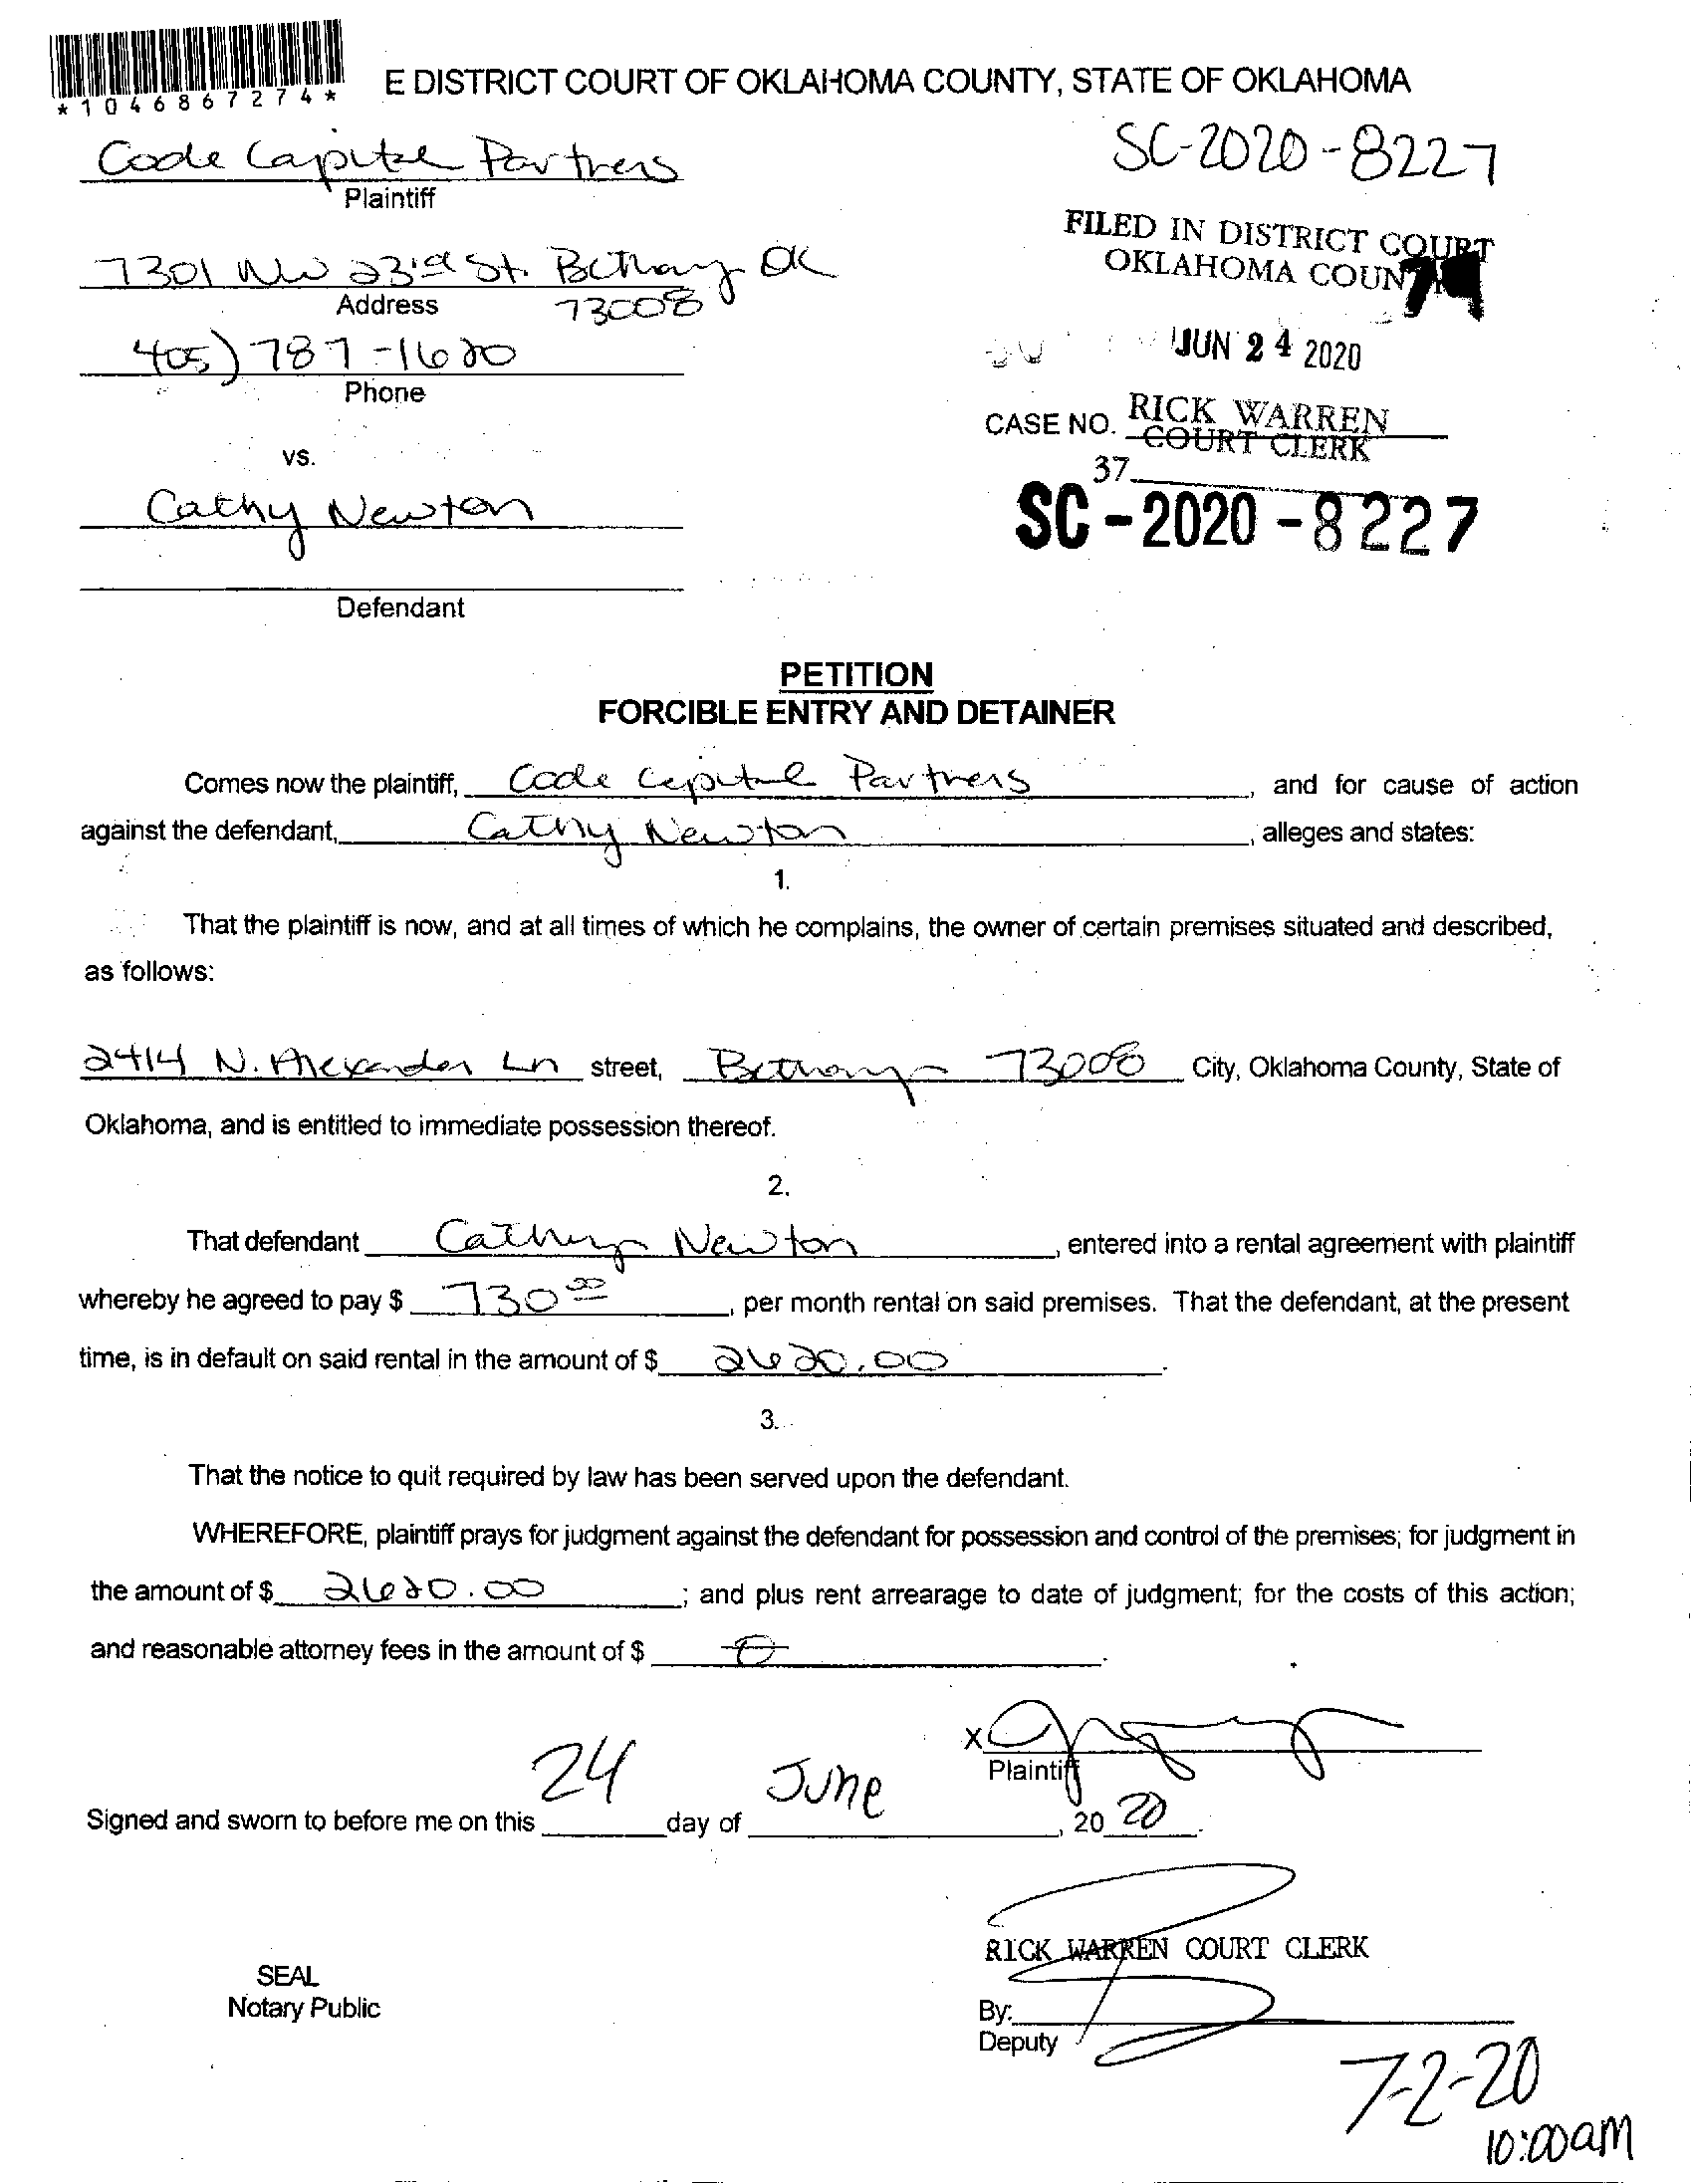 *1046867274*
E DISTRICT COURT OF OKLAHOMA COUNTY, STATE OF OKLAHOMA
Code Capital Partners
SC-2020-8227
Plaintiff
FILED IN DISTRICT COURT
OKLAHOMA COUNTY
7301 NW 23rd St. Bethany OK
Address
73008
JUN 24 2020
405) 787-1620
Phone
CASE NO. RICK WARREN
COURT CLERK
vs.
37
Cathy Newton
SC-2020-8227
Defendant
PETITION
FORCIBLE ENTRY AND DETAINER
Comes now the plaintiff, Code Capital Partners, and for cause of action
against the defendant, Cathy Newton, alleges and states:
1.
That the plaintiff is now, and at all times of which he complains, the owner of certain premises situated and described,
as follows:
2414 N. Alexander Ln street, Bethany 73008 City, Oklahoma County, State of
Oklahoma, and is entitled to immediate possession thereof.
2.
That defendant Cathy Newton, entered into a rental agreement with plaintiff
whereby he agreed to pay $ 730.00, per month rental on said premises. That the defendant, at the present
time, is in default on said rental in the amount of $ 2620.00.
3.
That the notice to quit required by law has been served upon the defendant.
WHEREFORE, plaintiff prays for judgment against the defendant for possession and control of the premises; for judgment in
the amount of $ 2620.00; and plus rent arrearage to date of judgment; for the costs of this action;
and reasonable attorney fees in the amount of $ 0.
X
Plaintiff
Signed and sworn to before me on this 24 day of June, 2020.
RICK WARREN COURT CLERK
SEAL
Notary Public
By:
Deputy
7-2-20
10:00am